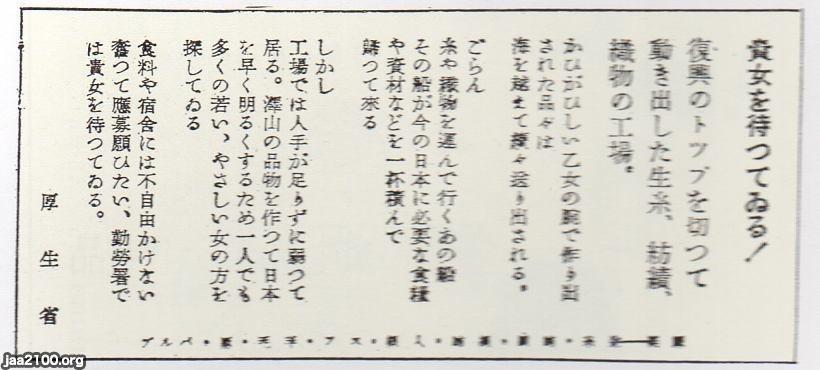 貴女を待つてゐる！
復興のトツプを切つて
動き出した生糸、紡績、
織物の工場。
かひがひしい乙女の腕で作り出
された品々は
海を越えて續々送り出される。
ごらん
糸や織物を運んで行くあの船
その船が今の日本に必要な食糧
や資材などを一杯積んで
歸つて來る
しかし
工場では人手が足りずに弱つて
居る。澤山の品物を作つて日本
を早く明るくするため一人でも
多くの若い、やさしい女の方を
探してゐる
食料や宿舎には不自由かけない
奮つて應募願ひたい、勤勞署で
は貴女を待つてゐる。
厚生省
jaa2100.org